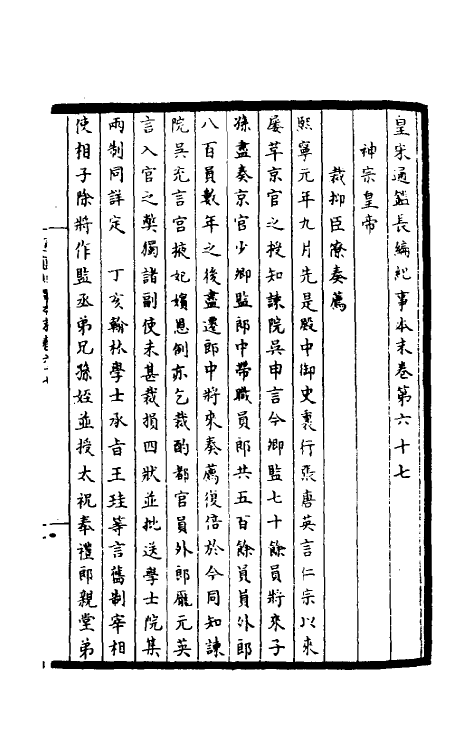 皇宋通鑑長編紀事本末卷第六十七
神宗皇帝
裁抑臣僚奏薦
熙寧元年九月先是殿中御史裏行張唐英言仁宗以來
屢草京官之授知諫院吳申言今卿監七十餘員將來子
孫盡奏京官少卿監郎中帶職員郎共五百餘員員外郎
八百員數年之後盡遷郎中將來奏薦復倍於今同知諫
院吳充言宮掖妃嬪恩例亦乞裁酌都官員外郎龐元英
言入官之弊獨諸副使未甚裁損四狀並批送學士院集
兩制同詳定 丁亥翰林學士承旨王珪等言舊制宰相
使相子除將作監丞弟兄孫姪並授太祝奉禮郎親堂弟